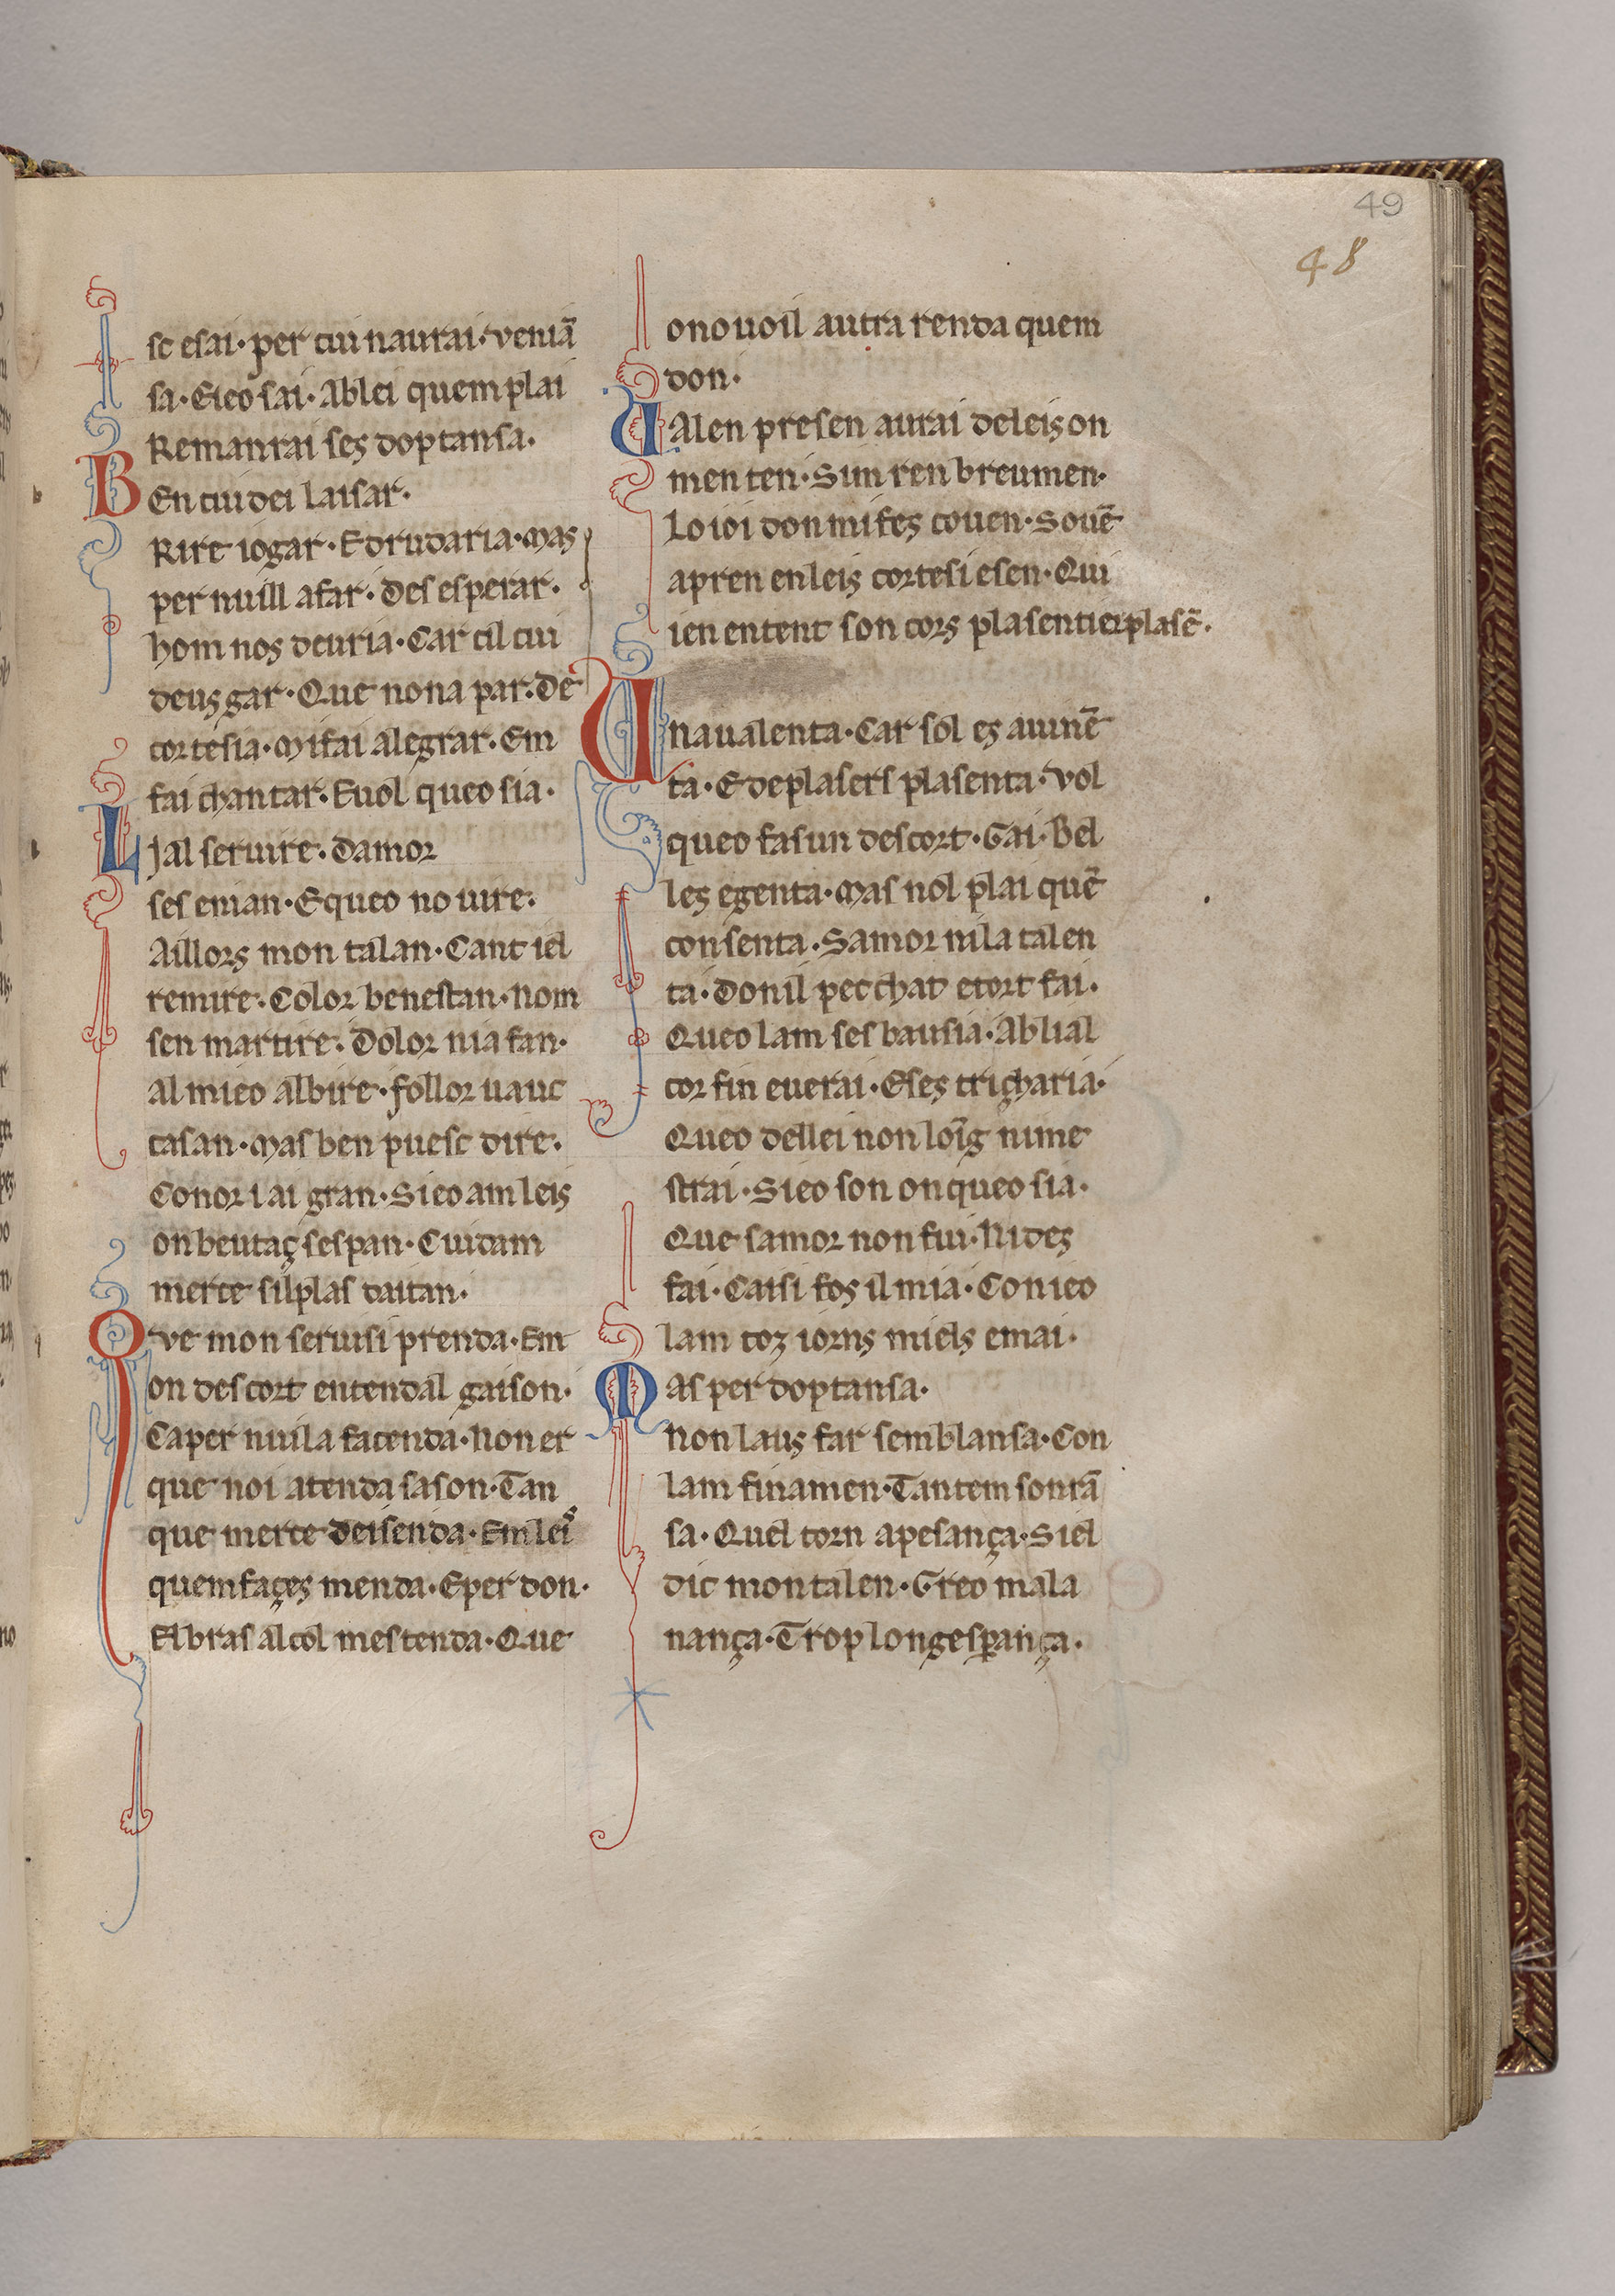 49
48
sc esai· per cui naurai· veniā
sa· Eieo sai· Ablei quem plai
Remanrai ses doptansa·
BEn cui dei laisar·
Rire iogar· E drudaria· Mas
per nuill afar· Des esperar·
hom nos deuria· Car cil cui
deus gar· Que nona par· De
cortesia· Mi fai alegrar· Em
fai chantar· Euol queo sia·
Ljal seruire· Damor
ses enian· Equeo no uire·
Aillors mon talan· Cant iel
remire· Color benestan· Nom
sen martire· Dolor nia fan·
Al mieo albire· follor uauc
casan· Mas ben puesc dire·
Conor i ai gran· Sieo am leis
on beutaç sespan· Cuidam
merce silplas daitan·
Que mon seruisi prenda· Em
on descort entendal gaison·
Caper nuila facenda· Non er
que noi atenda sason· Tan
que merce deisenda· Em leis
quem façes menda· Eper don·
El bras alcol mestenda· Que
ono uoil autra renda quem
don·
UAlen presen aurai deleis on
men ten· Sim ren breumen·
Lo ioi don mi fes couen· Souē
apren enleis cortesi esen· Qui
ien entent son cors plasentier plasē·
Una ualenta· Car sol es auinē
ta· E deplasers plasenta· Vol
queo fasun descort· Gai· Bel
les egenta· Mas nol plai quē
consenta· Samor nila talen
ta· Donil pecchat etort fai·
Queo lam ses bausia· Ablial
cor fin euerai· Eses tricharia·
Queo dellei non loīg nime
strai· Sieo son on queo sia·
Que samor non fui· Nides
fai· Caisi fos il mia· Con ieo
lam toz iorns miels emai·
Mas per doptansa·
Non laus far semblansa· Con
lam finamen· Tantem sonrā
sa· Quel torn apesança· Siel
dic mon talen· Greo mala
nança· Trop long esperança·